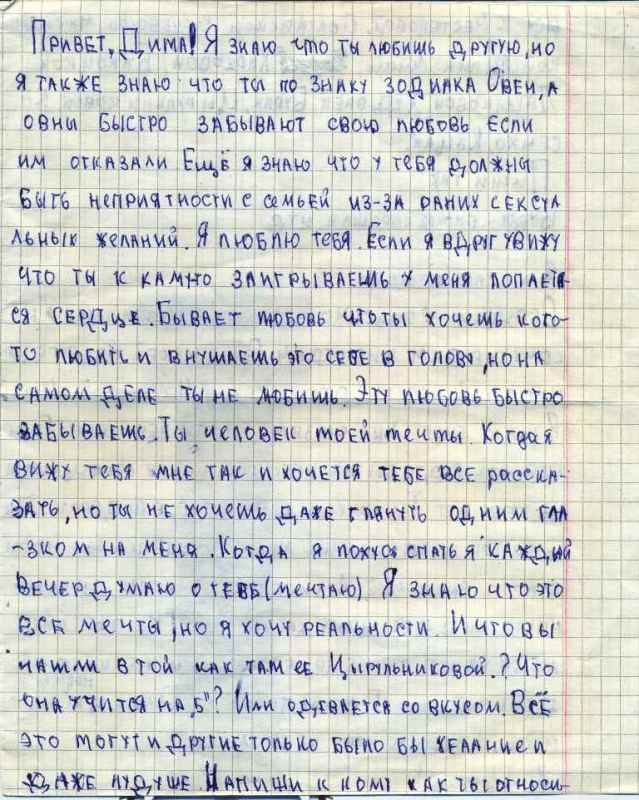 Привет, Дима! Я знаю что ты любишь другую, но
я также знаю что ты по знаку зодиака Овен, а
овны быстро забывают свою любовь если
им отказали Ещё я знаю что у тебя должны
быть неприятности с семьёй из-за раних сексуа
льных желаний. Я люблю тебя. Если я вдруг увижу
что ты к камуто заигрываешь у меня лопает-
ся сердце. Бывает любовь что ты хочешь кого-
то любить и внушаешь это себе в голову, но на
самом деле ты не любишь. Эту любовь быстро
забываешь. Ты человек моей мечты. Когда я
вижу тебя мне так и хочется тебе все расска-
зать, но ты не хочешь даже глянуть одним гла
-зком на меня. Когда я ложус спать я каждый
вечер думаю о тебе (мечтаю) Я знаю что это
все мечты, но я хочу реальности. И что вы
нашли в той как там ее Цырульниковой.? Что
она учится на „5"? Или одевается со вкусом. Всё
это могут и другие только было бы желание и
даже лудьше. Напиши к кому как ты относи-